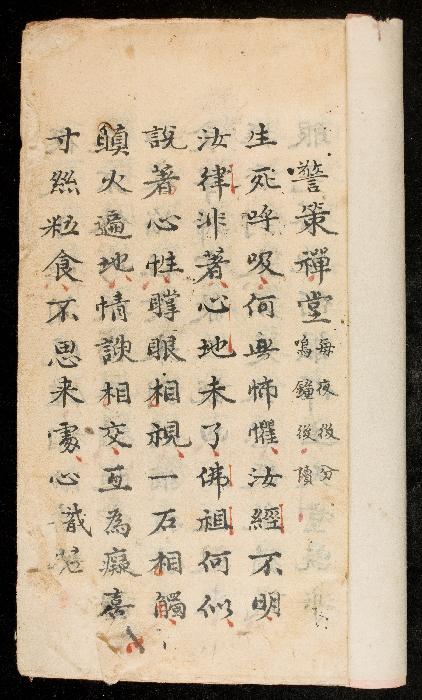 警策禪堂 每夜後分鳴鐘後讀
生死呼吸何無怖懼汝經不明
汝律非著心地未了佛祖何似
說著心性瞕眼相視一石相觸
瞋火遍地情談相交互為癡喜
寸絲粒食不思来處心識